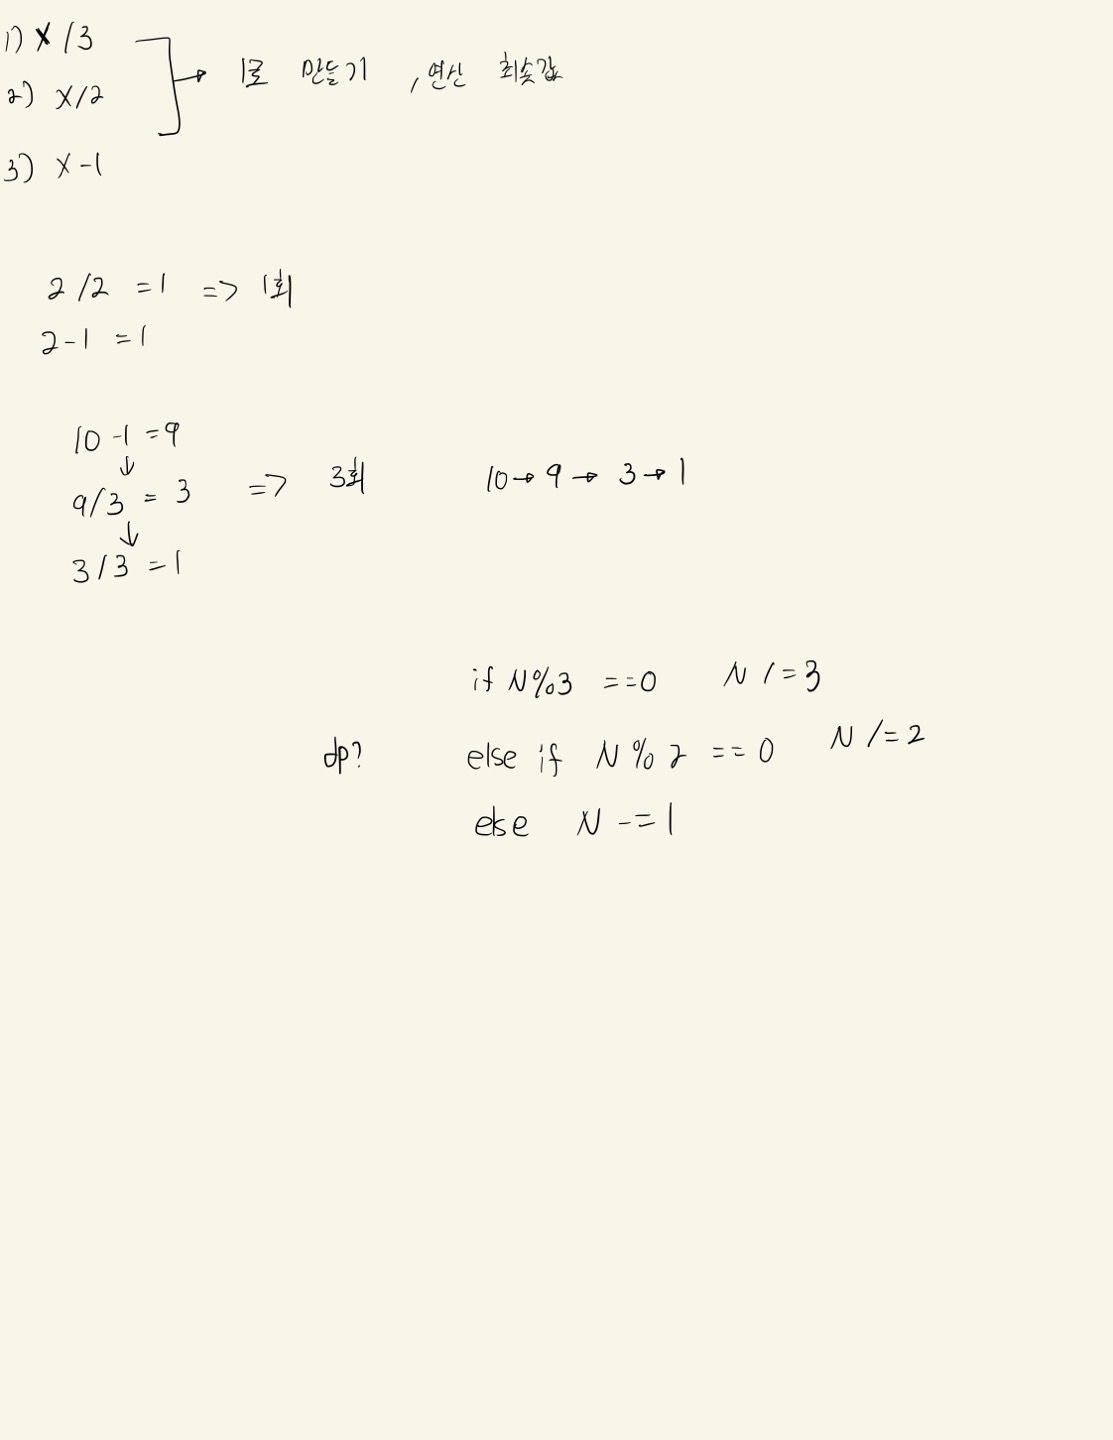 1) X/3
2) X/2
3) X-1
1로 만들기 , 연산 최솟값
2/2 =1 => 1회
2-1 =1
10-1=9
↓
9/3 = 3 => 3회
↓
3/3 =1
10→9→3→1
dp?
if N%3 ==0 N/=3
else if N%2 ==0 N/=2
else N-=1